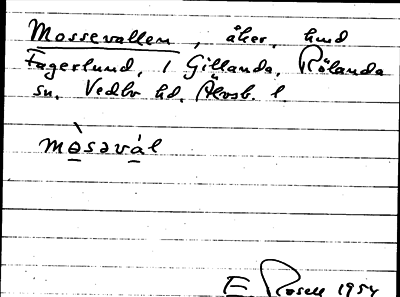 Mossevallen, åker, hmd
Fagerlund, 1 Gillanda, Rölanda
sn. Vedbo hd. Älvsb. l.
mòsavál
E Rosell 1954